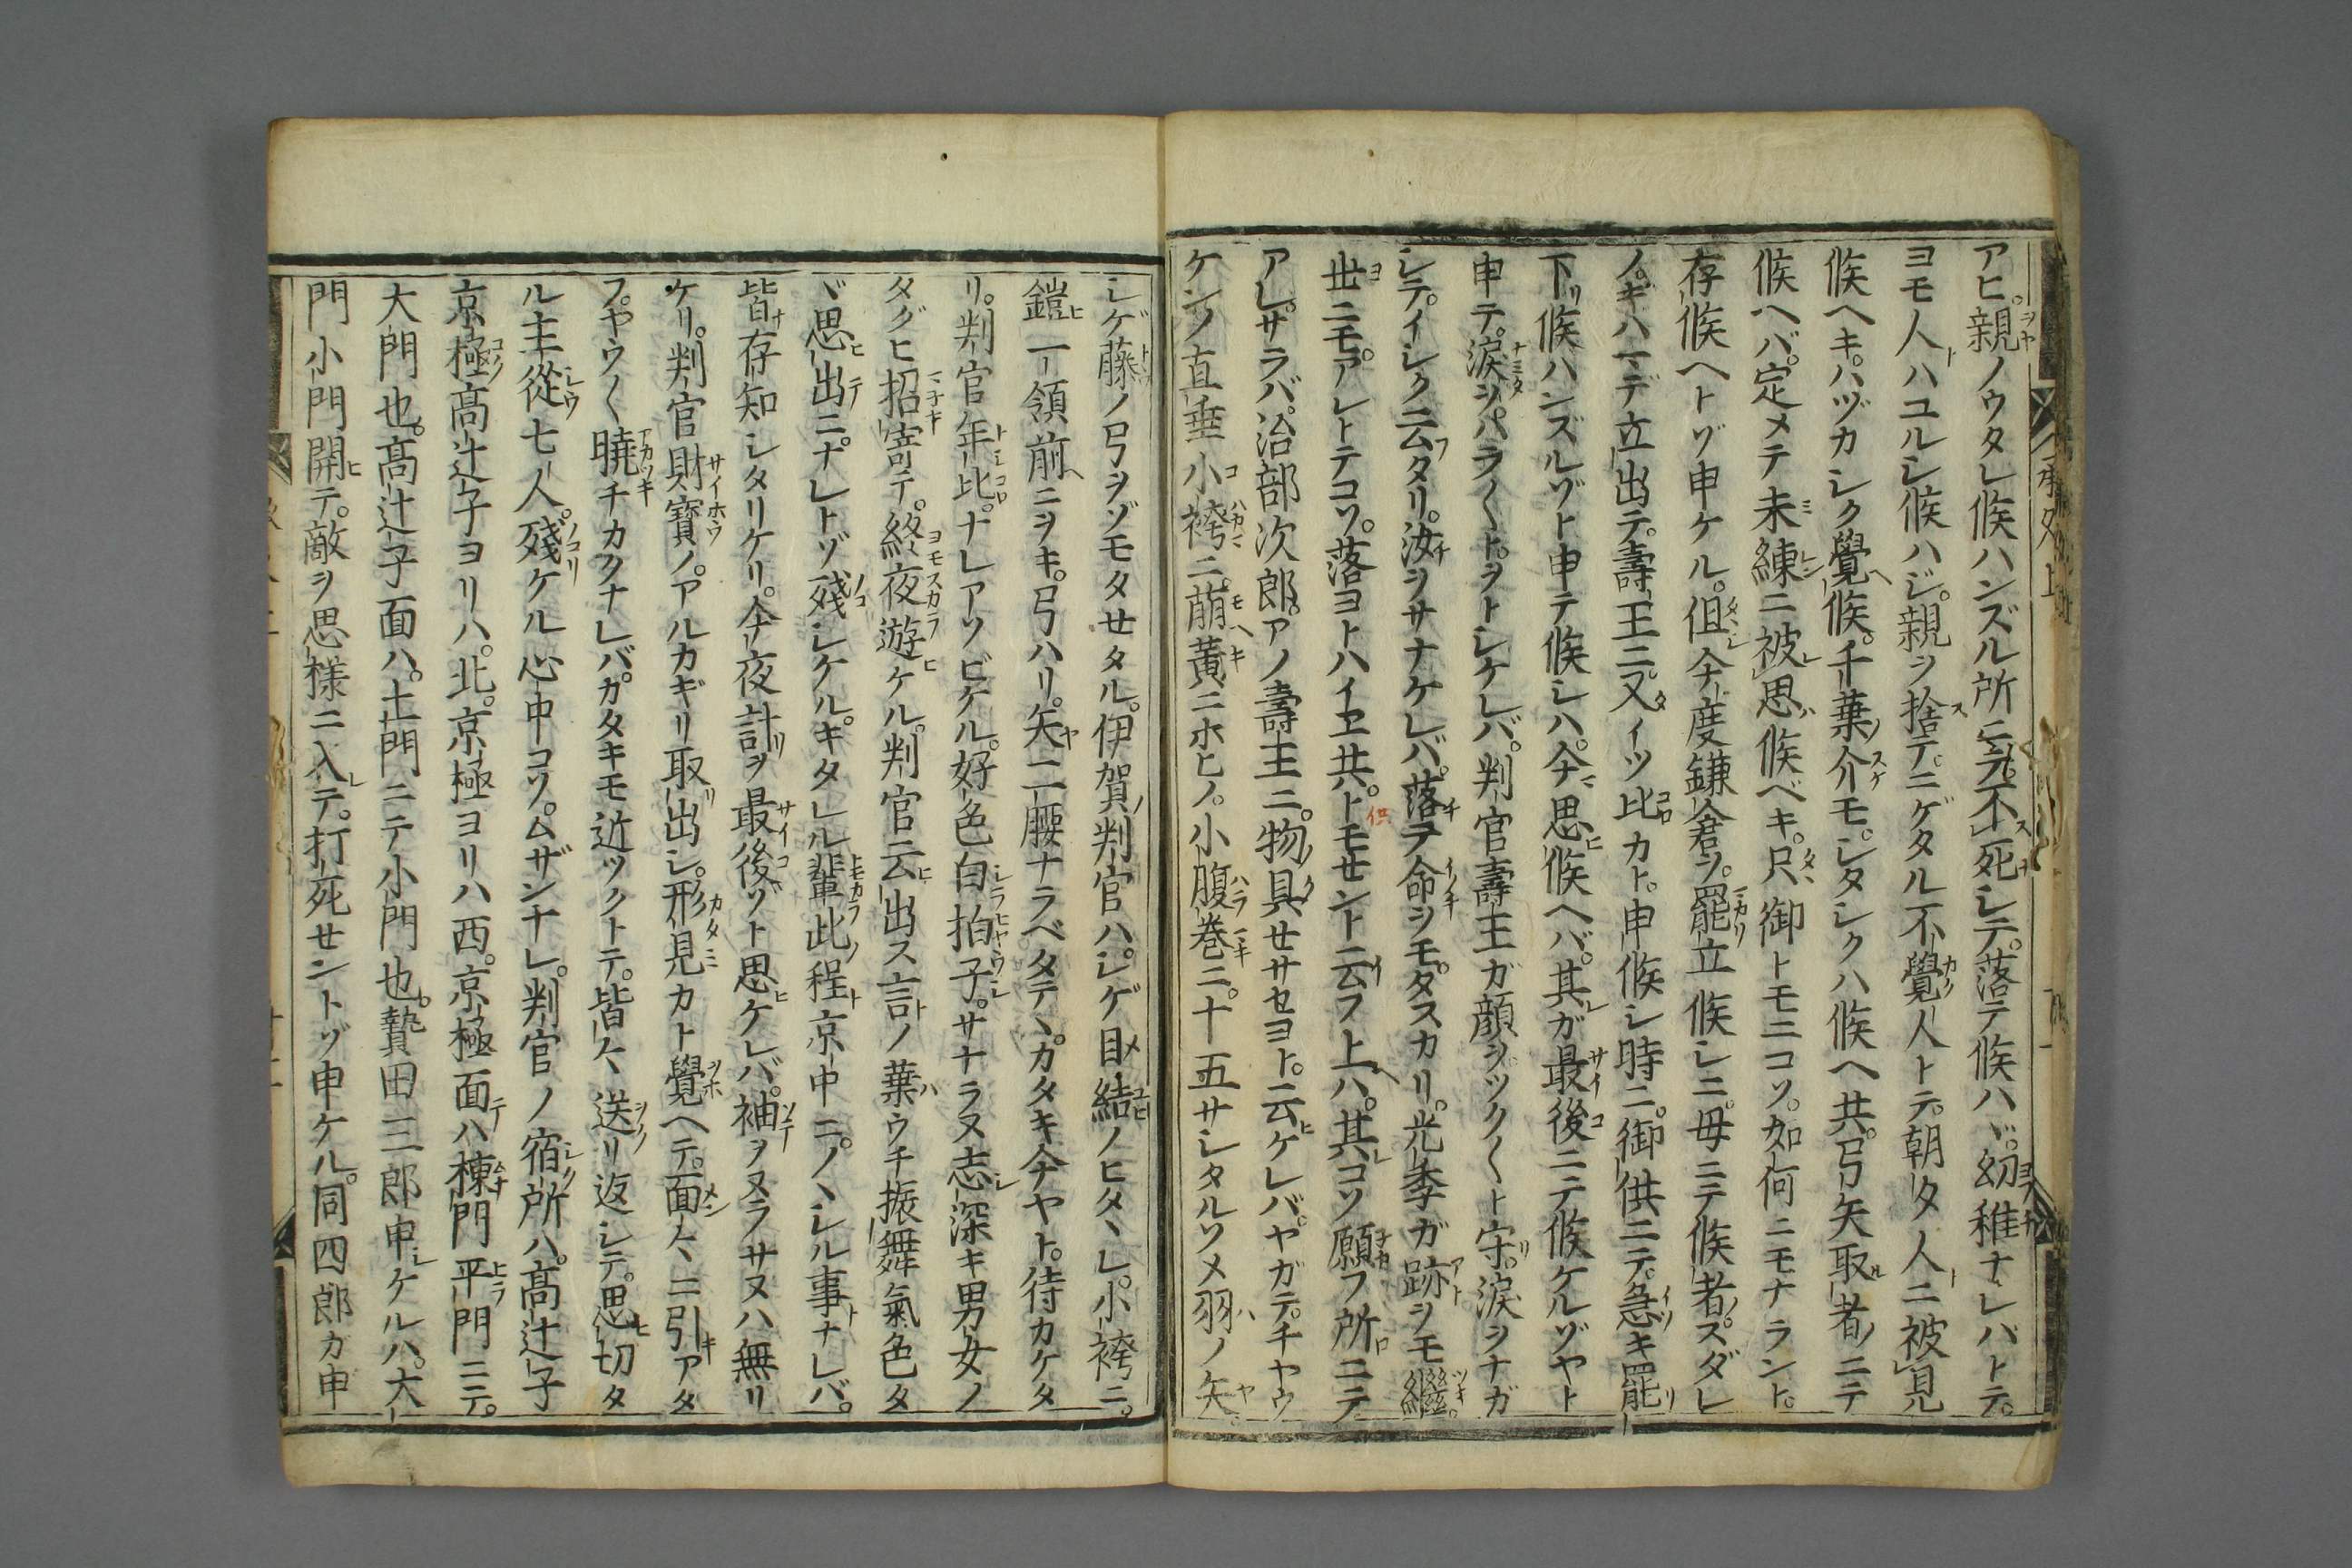 アヒ。親ノウタレ候ハンズル所ニテ。不死シテ。落テ候ハヾ。幼稚ナレバトテ。
ヨモ人ハユルシ候ハジ。親ヲ捨テニゲタル不覺人トテ。朝夕人ニ被見
候ヘキ。ハヅカシク覺候。千葉介モ。シタシクハ候ヘ共。弓矢取者ニテ
候ヘバ。定メテ未練ニ被思候ベキ。只御トモニコソ。如何ニモナラント。
存候ヘトゾ申ケル。但今度鎌倉ヲ。罷立候シニ。母ニテ候者。スダレ
ノ。ギハマデ立出テ。壽王ニ。又イツ比カト。申候シ時ニ。御供ニテ。急キ罷
下リ候ハンズルゾト申テ候シハ。今ヲ思候ヘバ。其ガ最後ニテ候ケルゾヤト
申テ。淚ヲ。ハラ〱ト。ヲトシケレバ。判官壽王ガ顔ヲ。ツク〱ト守。淚ヲナガ
シテ。イシク云タリ。汝ヲサナケレバ。落テ命ヲモ。タスカリ。光季ガ跡ヲモ繼。
世ニモ。アレトテコソ。落ヨトハイヱ共。トモセント云フ上ハ。其コソ願フ所ニテ
アレ。サラバ。治部次郎。アノ壽王ニ。物具セサセヨト。云ケレバ。ヤガテ。チヤウ
ケンノ直垂小袴ニ。萠黄ニホヒノ。小腹巻ニ。十五サシタルソメ羽ノ矢。
シゲ藤ノ弓ヲゾモタセタル。伊賀判官ハ。シゲ目結ノヒタヽレ。小袴ニ。
鎧一領前ニヲキ。弓ハリ。矢二腰ナラベタテヽ。カタキ今ヤト。待カケタ
リ。判官年比。ナレアソビケル。好色白拍子。サナラヌ志深キ男女ノ
タグヒ招寄テ。終夜遊ケル。判官云出ス言ノ葉ウチ振舞氣色タ
ヾ思出ニ。ナレトゾ殘シケル。キタレル輩此程京中ニ。ノヽシル事ナレバ。
皆存知シタリケリ。今夜計ヲ最後ゾト思ケレバ。袖ヲヌラサヌハ無リ
ケリ。判官財寶ノ。アルカギリ取出シ。形見カト覺ヘテ。面々ニ引アタ
フ。ヤウ〱曉チカクナレバ。カタキモ近ツクトテ。皆々送リ返シテ。思切タ
ル主從七人。殘ケル心中コソ。ムザンナレ。判官ノ宿所ハ。高辻子
京極高辻子ヨリハ。北。京極ヨリハ西。京極面ハ棟門平門ニテ。
大門也。高辻子面ハ。土門ニテ小門也。贄田三郎申ケルハ。大
門小門開テ。敵ヲ思樣ニ入テ。打死セントゾ申ケル。同四郎カ申